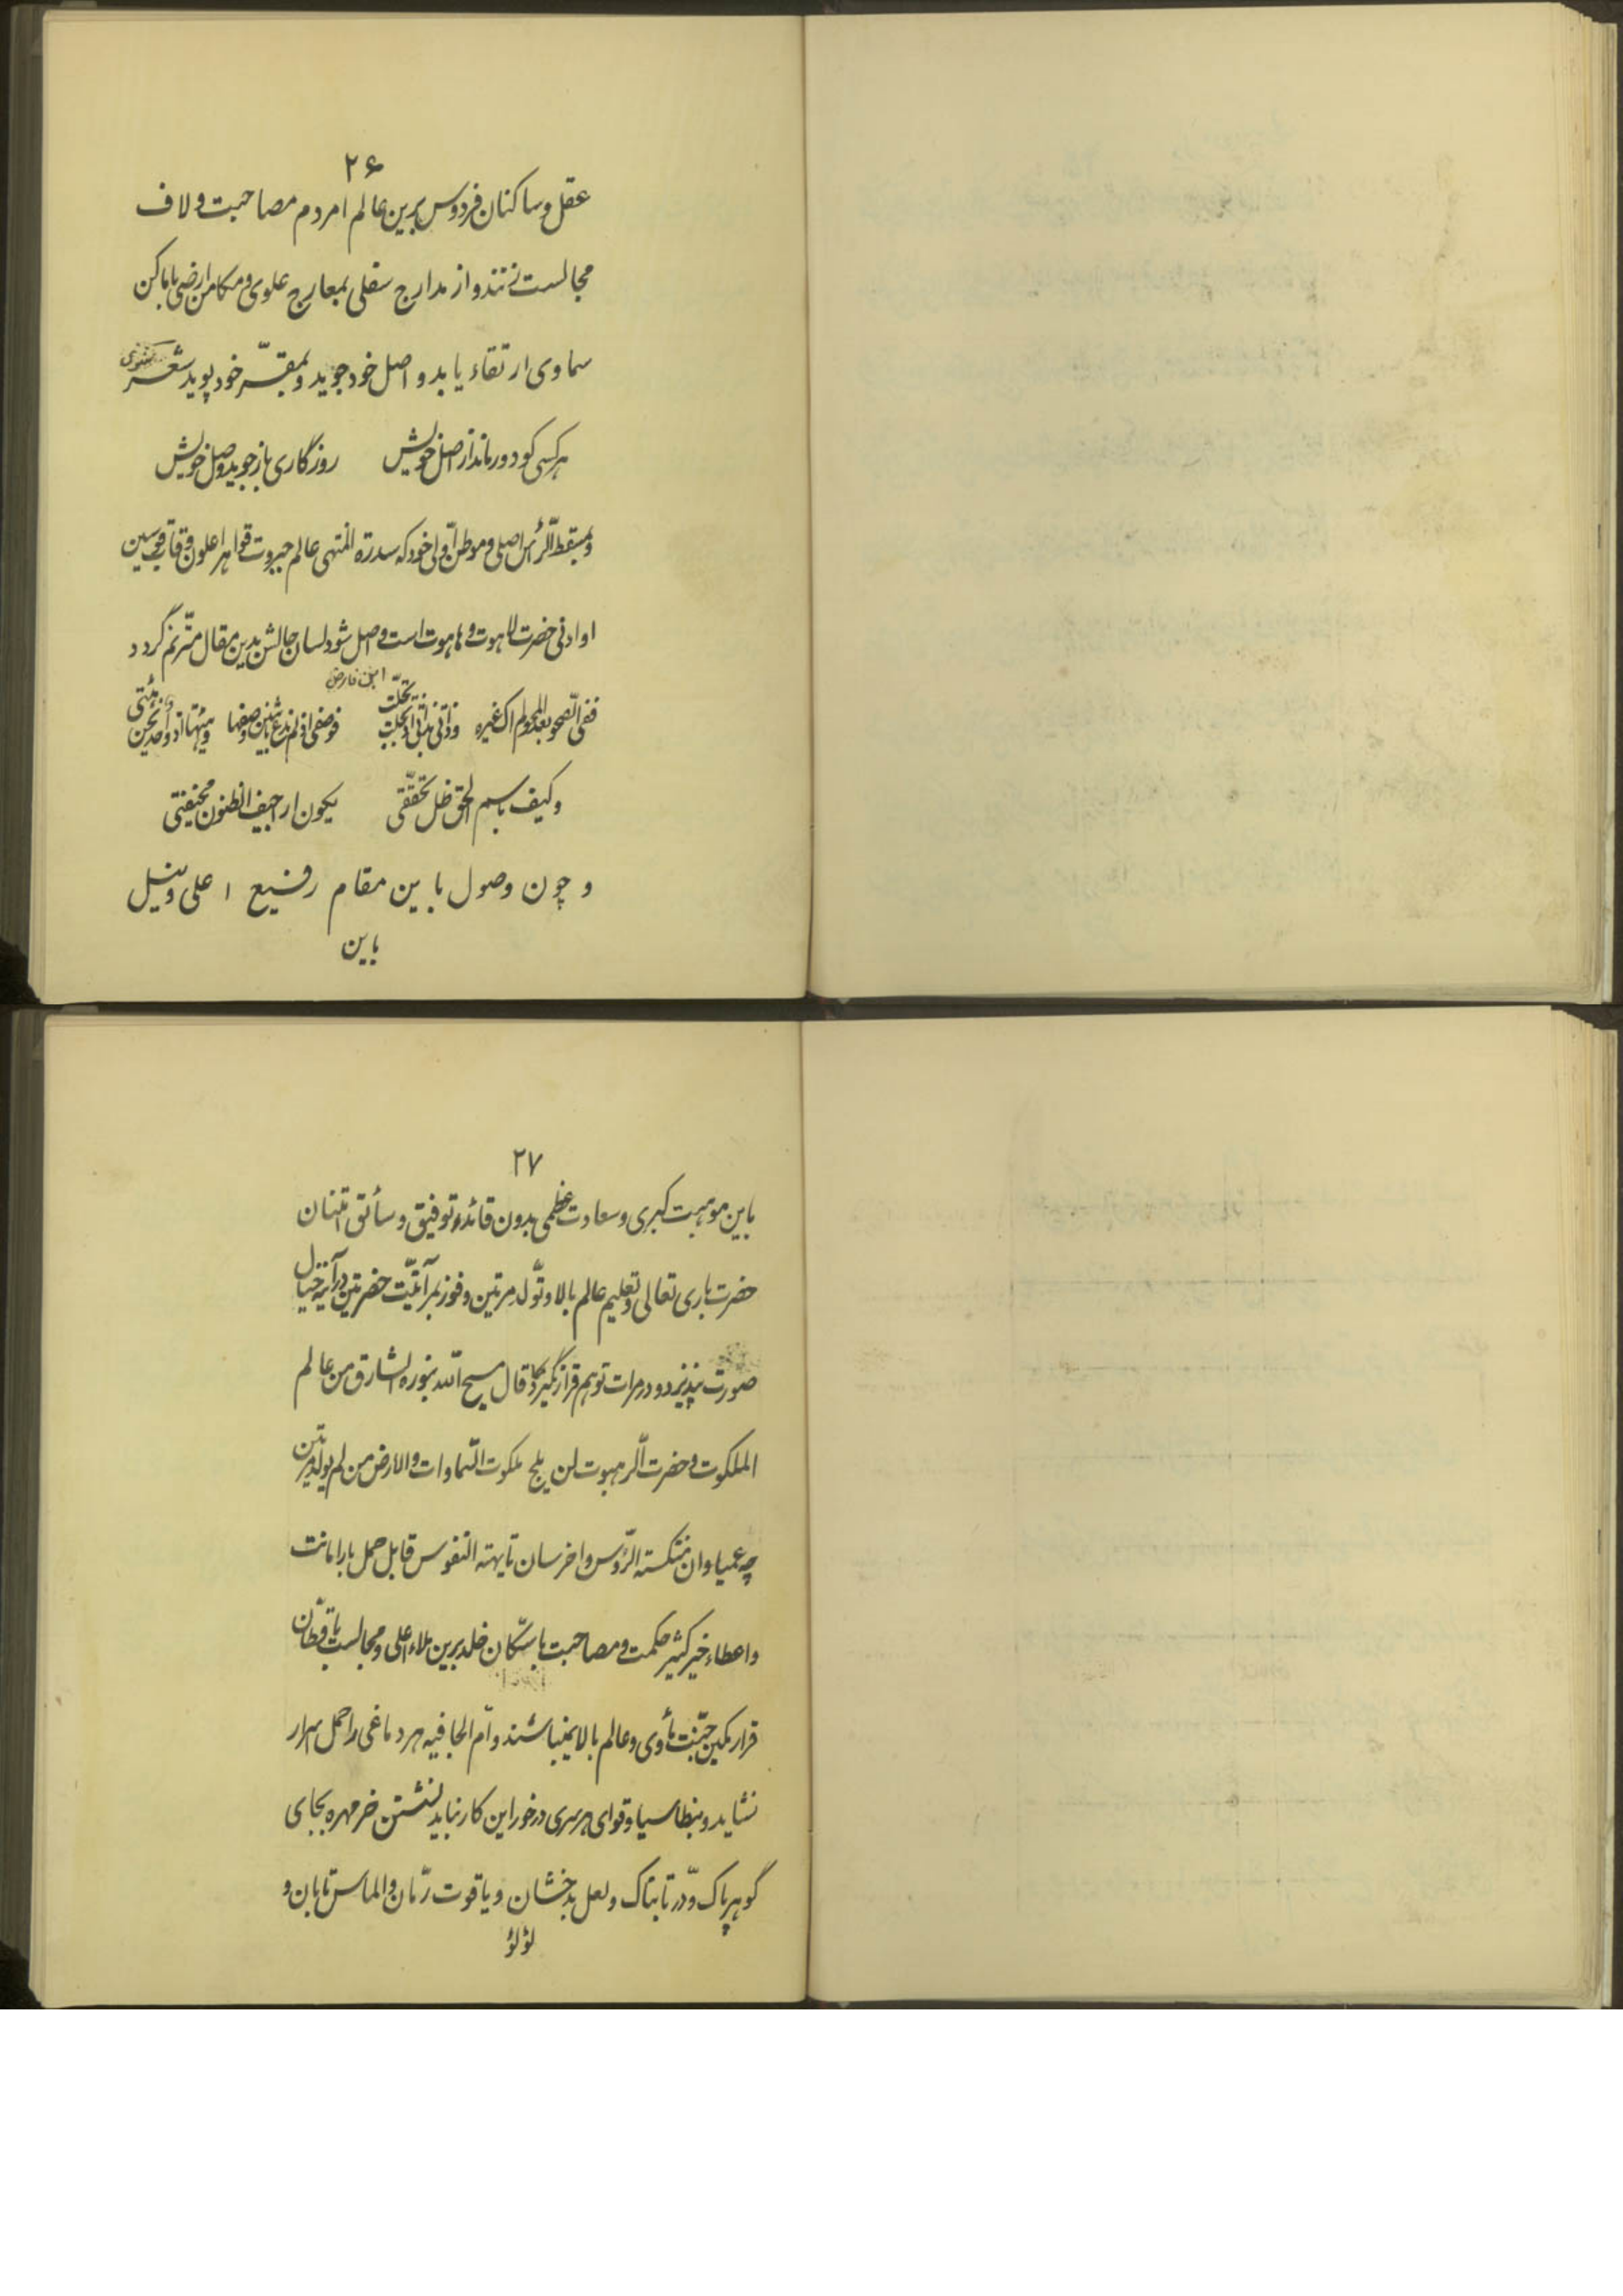 ۲۶
عقل و ساکنان فردوس برین عالم امر دم مصاحبت و لاف
مجالست زنند و از مدارج سفلی بمعارج علوی و مکامن ارضی باماکن
سماوی ارتقاء یابد و اصل خود جوید و بمقرّ خود پوید شعر مثنوی
هر کسی کو دور ماند از اصل خویش روزگاری باز جوید وصل خویش
و بمسقط الرّأس اصلی و موطن اوّلی خود که سدرة المنتهی عالم جبروت قواهر اعلون و قاب قوسین
او ادنی حضرت لاهوت و هاهوت است واصل شود لسان حالش بدین مقال مترنّم گردد
ابن فارض
ففی الصّحو بعد المحو لم اک غیره و ذاتی بذاتی اذ تجلّت تحلّت فوصفی اذ لم تدع باثنین وصفها و هیئتها اذ واحد نحن هیئتی
و کیف باسم الحق ظل تحقّقی یکون اراجیف الظنون مخیفتی
و چون وصول باین مقام رفیع اعلی و نیل
باین
۲۷
باین موهبت کبری و سعادت عظمی بدون قائد توفیق و سائق امتنان
حضرت باری تعالی و تعلیم عالم بالا و تولّد مرتین و فوز بمرآتیّت حضرتین در آینه خیال
صورت نپذیرد و در مرات توهم قرار نگیرد کما قال مسیح اللّه بنوره الشارق من عالم
الملکوت و حضرت الرّهبوت لن یلج ملکوت السّماوات والارض من لم یولد مرتین
چه عمیاوان منتکسته الرّؤس و اخرسان تایهته النفوس قابل حمل بار امانت
و اعطاء خیر کثیر حکمت و مصاحبت با سکّان خلد برین ملاء اعلی و مجالست با قطّان
قرار مکین جنّت مأوی و عالم بالا نمیباشند و امّ الجافیه هر دماغی را حمل اسرار
نشاید و بنطاسیا و قوای هر سری در خور این کار نباید نشستن خر مهره بجای
گوهر پاک و درّ تابناک و لعل بدخشان و یاقوت رمّان و الماس تابان و
لؤلؤ